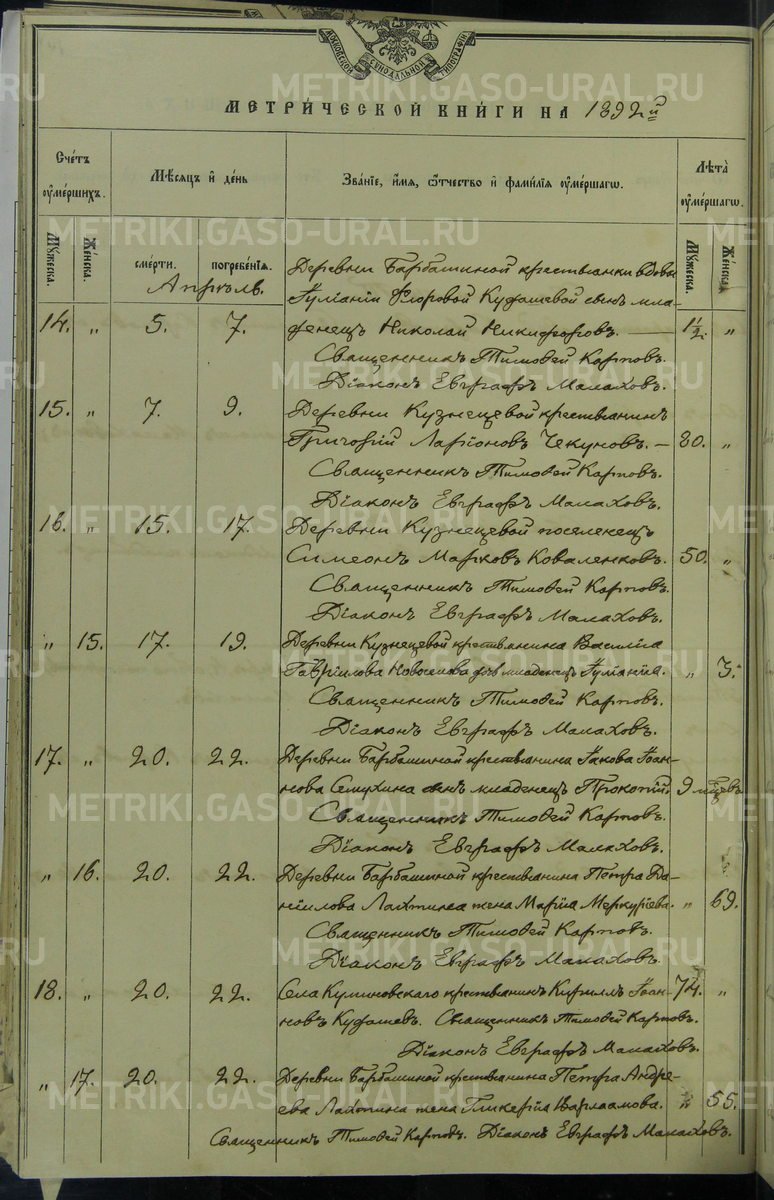 МОСКОВСКОЙ СѴНОДАЛЬНОЙ ТИПОГРАФІИ
МЕТРИ́ЧЕСКОЙ КНИ́ГИ НА 1892й
Сче́тъ оу҆ме́ршихъ.
Мѣ́сяцъ и҆ де́нь
Зва́нїе, и҆́мѧ, ѻ҆́тчество и҆ фами́лїѧ оу҆ме́ршагѡ.
Лѣ́та оу҆ме́ршагѡ.
Мꙋ́жеска.
Же́нска.
сме́рти.
погребе́нїѧ.
Мꙋ́жеска.
Же́нска.
Апрѣль.
Деревни Барбашиной крестьянки вдовы
Іуліаніи Флоровой Кудашевой сынъ мла-
14. „ 5. 7. денецъ Николай Никифоровъ. — 1½. „
Священникъ Тимоѳей Карповъ.
Діаконъ Евграфъ Малаховъ.
15. „ 7. 9. Деревни Кузнецевой крестьянинъ
Григорій Ларіоновъ Чекуновъ. — 80. „
Священникъ Тимоѳей Карповъ.
Діаконъ Евграфъ Малаховъ.
16. „ 15. 17. Деревни Кузнецевой поселенецъ
Симеонъ Марковъ Коваленковъ. 50. „
Священникъ Тимоѳей Карповъ.
Діаконъ Евграфъ Малаховъ.
„ 15. 17. 19. Деревни Кузнецевой крестьянина Василія
Гавріилова Новоселова младенецъ Іуліанія. „ 3.
Священникъ Тимоѳей Карповъ.
Діаконъ Евграфъ Малаховъ.
17. „ 20. 22. Деревни Барбашиной крестьянина Іакова Іоан-
нова сынъ младенецъ Прокопій 9 мѣсцевъ
Священникъ Тимоѳей Карповъ.
Діаконъ Евграфъ Малаховъ.
„ 16. 20. 22. Деревни Барбашиной крестьянина Петра Да-
ніилова Лаптина жена Марія Меркуріева. „ 69.
Священникъ Тимоѳей Карповъ.
Діаконъ Евграфъ Малаховъ.
18. „ 20. 22. Села крестьянинъ Кириллъ Іоан- 74. „
новъ Кудашевъ. Священникъ Тимоѳей Карповъ.
Діаконъ Евграфъ Малаховъ.
„ 17. 20. 22. Деревни Барбашиной крестьянина Петра Андре-
ева Лаптина жена Гликерія Варлаамова. „ 55.
Священникъ Тимоѳей Карповъ. Діаконъ Евграфъ Малаховъ.
METRIKI.GASO-URAL.RU